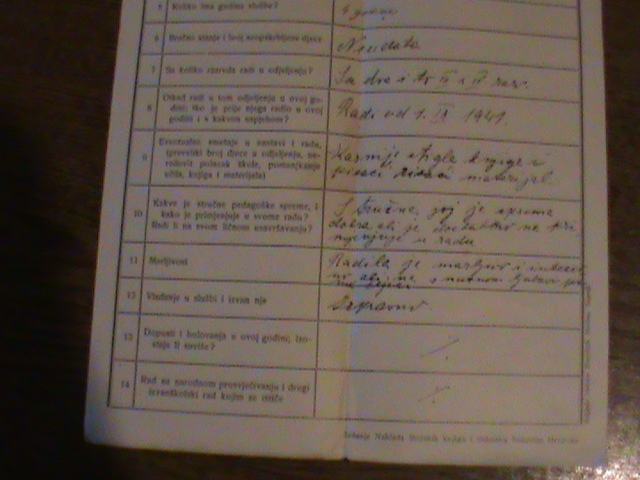 5 Koliko ima godina službe? 4 godine
6 Bračno stanje i broj neopskrbljene djece Neudata
7 Sa koliko razreda radi u odjeljenju? Sa dva i to II i IV raz.
8 Otkad radi u tom odjeljenju u ovoj go-
dini; tko je prije njega radio u ovoj
godini i s kakvim uspjehom?
Radi od 1. IX 1941.
9 Eventualne smetnje u nastavi i radu,
(preveliki broj djece u odjeljenju, ne-
redovit polazak škole, pomanjkanje
učila, knjiga i materijala)
Kasnije stigle knjige i
pisaći materijal.
10 Kakve je stručne pedagoške spreme, i
kako je primjenjuje u svome radu?
Radi li na svom ličnom usavršavanju?
Stručna joj je sprema
dobra ali je
u radu
11 Marljivost
Radila je marljivo i
ali s ljubavi
12 Vladanje u službi i izvan nje Ispravno
13 Dopusti i bolovanja u ovoj godini; izo-
staje li suviše?
14 Rad na narodnom prosvjećivanju i drugi
izvanškolski rad kojim se ističe
Izdanje Naklada školskih knjiga i tiskanica